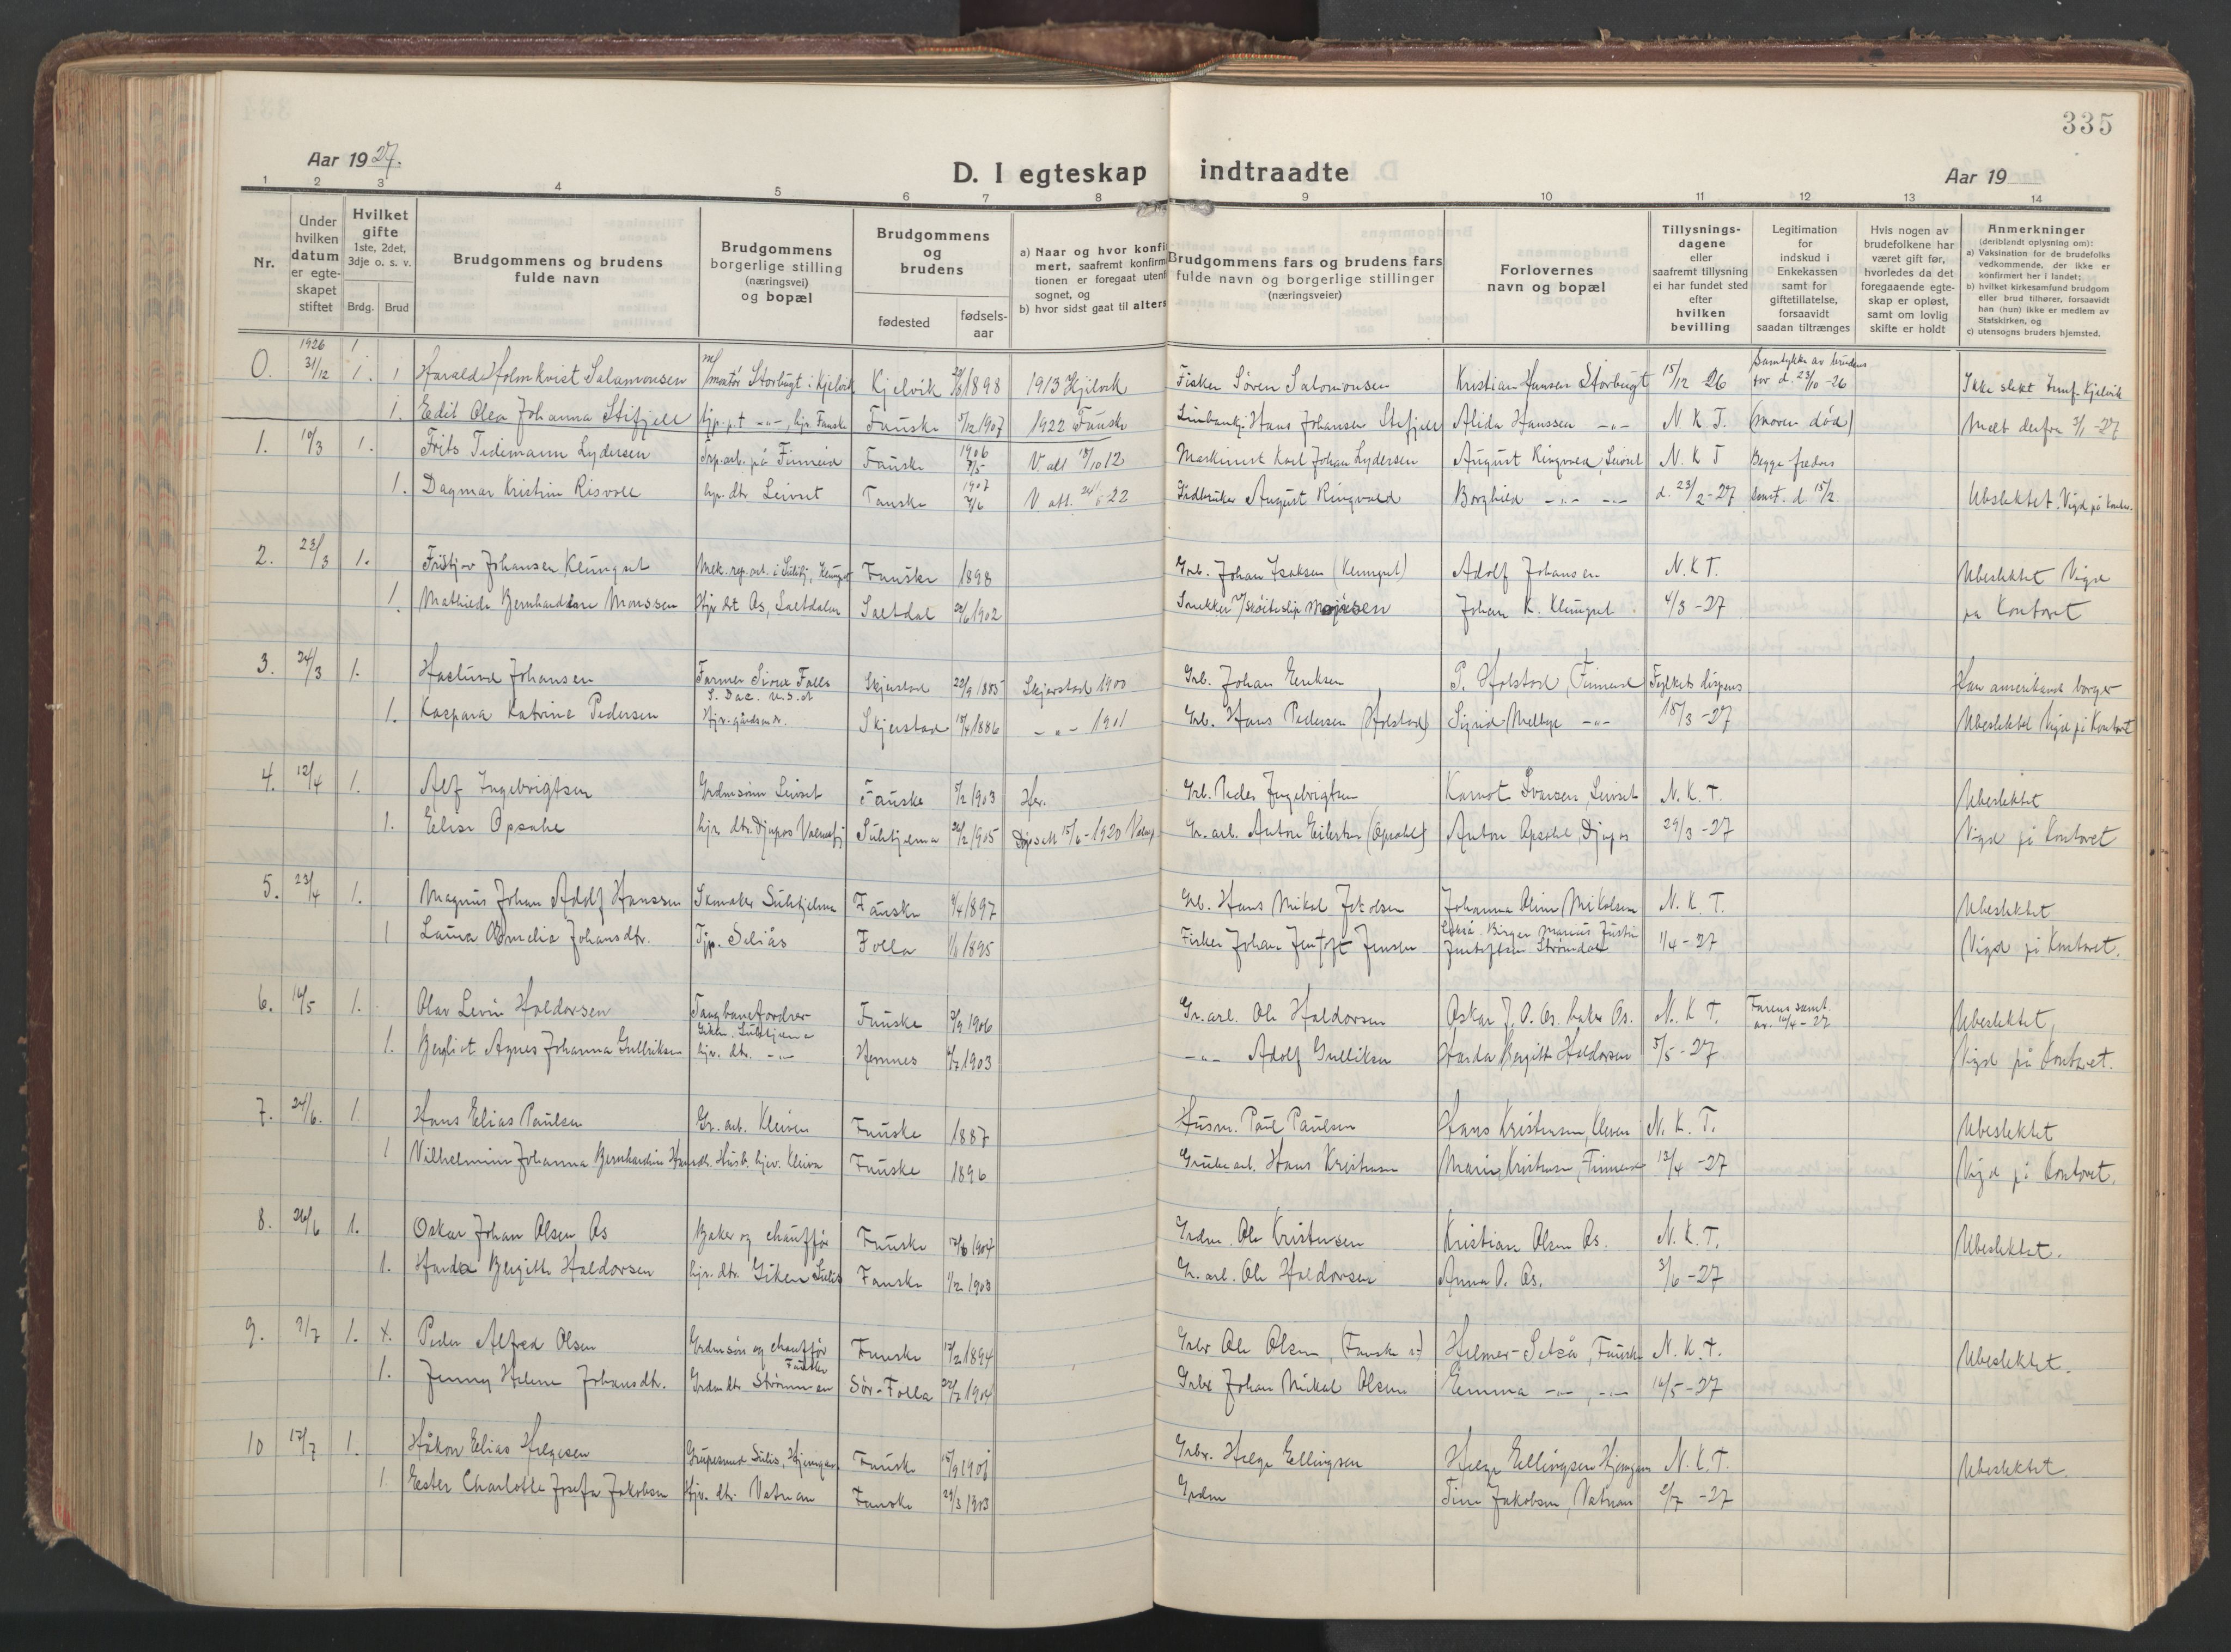 335
Aar 1927.
D. I egteskap indtraadte
Aar 19
1 2 3 4 5 6 7 8 9 10 11 12 13 14
Nr.
Under hvilken datum er egte-skapet stiftet
Hvilket gifte 1ste, 2det, 3dje o. s. v.
Brdg. Brud
Brudgommens og brudens fulde navn
Brudgommens borgerlige stilling (næringsvei) og bopæl
Brudgommens og brudens
fødested
fødsels-aar
a) Naar og hvor konfi
mert, saafremt konfirm
tionen er foregaat utenf
sognet, og
b) hvor sidst gaat til alters
Brudgommens fars og brudens fars fulde navn og borgerlige stillinger (næringsveier)
Forlovernes navn og bopæl
Tillysnings-dagene eller saafremt tillysning ei har fundet sted efter hvilken bevilling
Legitimation for indskud i Enkekassen samt for giftetillatelse, forsaavidt saadan tiltrænges
Hvis nogen av brudefolkene har været gift før, hvorledes da det foregaaende egte-skap er opløst, samt om lovlig skifte er holdt
Anmerkninger
(deriblandt oplysning om):
a) Vaksination for de brudefolks vedkommende, der ikke er konfirmert her i landet;
b) hvilket kirkesamfund brudgom eller brud tilhører, forsaavidt han (hun) ikke er medlem av Statskirken, og
c) utensogns bruders hjemsted.
0. 1926 31/12 1. Harald Holmkvist Salamonsen montør Storbugt i Kjelvik Kjelvik 1898 1913 Kjelvik Fisker Søren Salomonsen Kristian Hansen Storbugt 15/12 26 Samtykke av brudens far d. 23/10-26 Ikke slekt Kjelvik
1. Edit Olea Johanna Stifjell Fauske 5/12 1907 1922 Fauske Hans Johansen Stifjell Alida Hanssen -"- N. K. T. (moren død) Meld. derfra 3/1-27
1. 10/3 1. Frits Tidemann Lydersen på Finneid Fauske 1906 7/5 V att Maskinist Karl Johan Lydersen August Ringvold Leivset N. K T Begge fedres
1. Dagmar Kristine Risvoll hjv. dtr Leivset Fauske 1907 V att. August Ringvold Borghild -"- -"- d. 23/2-27 samt. d. 15/2 Ubeslektet. Vigd på kontor.
2. 23/3 1. Fritjov Johansen Klungset Fauske 1898 Grb. Johan Isaksen (Klungset) Adolf Johansen N. K T. Ubeslektet Vigd
1. Mathilde Bernhardine Monssen Hjv dtr Os, Saltdalen Saltdal 1902 Snekker Johan K. Klungset 4/3-27 på Kontoret
3. 24/3 1. Haslund Johansen Farmer Sioux Falls S. Dac. U.S.A Skjerstad 22/9 1885 Skjerstad 1900 Grb. Johan Eriksen P. Holstad, Finneid Fylkets dispens Han amerikansk borger
1. Kaspara Katrine Pedersen Hjv. gårdsm.dr. Skjerstad 1886 -"- 1901 Grb. Hans Pedersen (Holstad) Sigrid Melbye -"- 15/3-27 Ubeslektet Vigd på Kontoret
4. 12/4 1. Alf Ingebrigtsen Grdmsønn Leivset Fauske 5/2 1903 Her. Grb. Peder Ingebrigtsen Karnot Ivarsen, Leivset N. K. T. Ubeslektet
1. Elise Opsahl hjv. dtr. Djupos Valnesfj Sulitjelma 1905 15/6-1920 Gr. arb. Anton Eilertsen (Opsahl) Anton Opsahl, Djupos 29/3-27 Vigd på Kontoret
5. 23/4 1. Magnus Johan Adolf Hanssen Skomaker Sulitjelma Fauske 1897 Grb. Hans Mikal Johanna Oline Mikalsen N. K. T. Ubeslektet
1 Laura Amelia Johansdtr. Tjp. Seljås Folla 1895 Fisker Johan Jentoft Jensen Birger Marius Justin Jentoftsen Strømdal 1/4-27 Vigd på Kontoret.
6. 14/5 1. Olav Levin Haldorsen Taugbanefordrer Giken, Sulitjelma Fauske 1906 Gr. arb. Ole Haldorsen Oskar J. O. Os. baker Os. N. K T. Farens samt. av. 16/4-27 Ubeslektet,
1. Bergliot Agnes Johanna Gullriksen hjv. dtr. -"- Hemnes 1903 -"- Adolf Gulliksen Harda Bergitte Haldorsen 3/5-27 Vigd på Kontoret.
7. 24/6. 1. Hans Elias Paulsen Gr. arb. Kleiven Fauske 1887 Husm. Paul Paulsen Hans Kristensen, Kleven N. K. T. Ubeslektet
1 Vilhelmine Johanna Bernhardine Husb. hjv. Kleiva Fauske 1896 Grubearb. Hans Kristensen Marie Kristensen, Finneid 12/4-27 Vigd på Kontoret.
8. 26/6 1. Oskar Johan Olsen Os Baker og chauffør Fauske 1904 Grdm. Ole Kristensen Kristian Olsen Os. N. K. T. Ubeslektet.
1. Harda Bergitte Haldorsen hjv. dtr. Giken Sulis Fauske 1/2 1903 Gr. arb. Ole Haldorsen Anna O. Os. 3/6-27
9. 9/7 1. Peder Alfred Olsen Grdmsøn og chauffør Fauske Fauske 1894 Grbr Ole Olsen, (Fauske Helmer Setså, Fauske N. K. T. Ubeslektet.
1. Jenny Helene Johansdtr. Grdm dtr Strømmen Sør-Folla 1904 Grbr Johan Mikal Olsen Emma -"-, -"- 16/5-27
10 17/7 1. Håkon Elias Helgesen Sulis, Fauske Grbr. Helge Ellingsen Helge Ellingsen N. K. T. Ubeslektet.
1. Ester Charlotte Josefa Jakobsen Hjv. dtr. Vatnan Fauske 29/3 1903 Grdm Tine Jakobsen, Vatnan 2/7-27